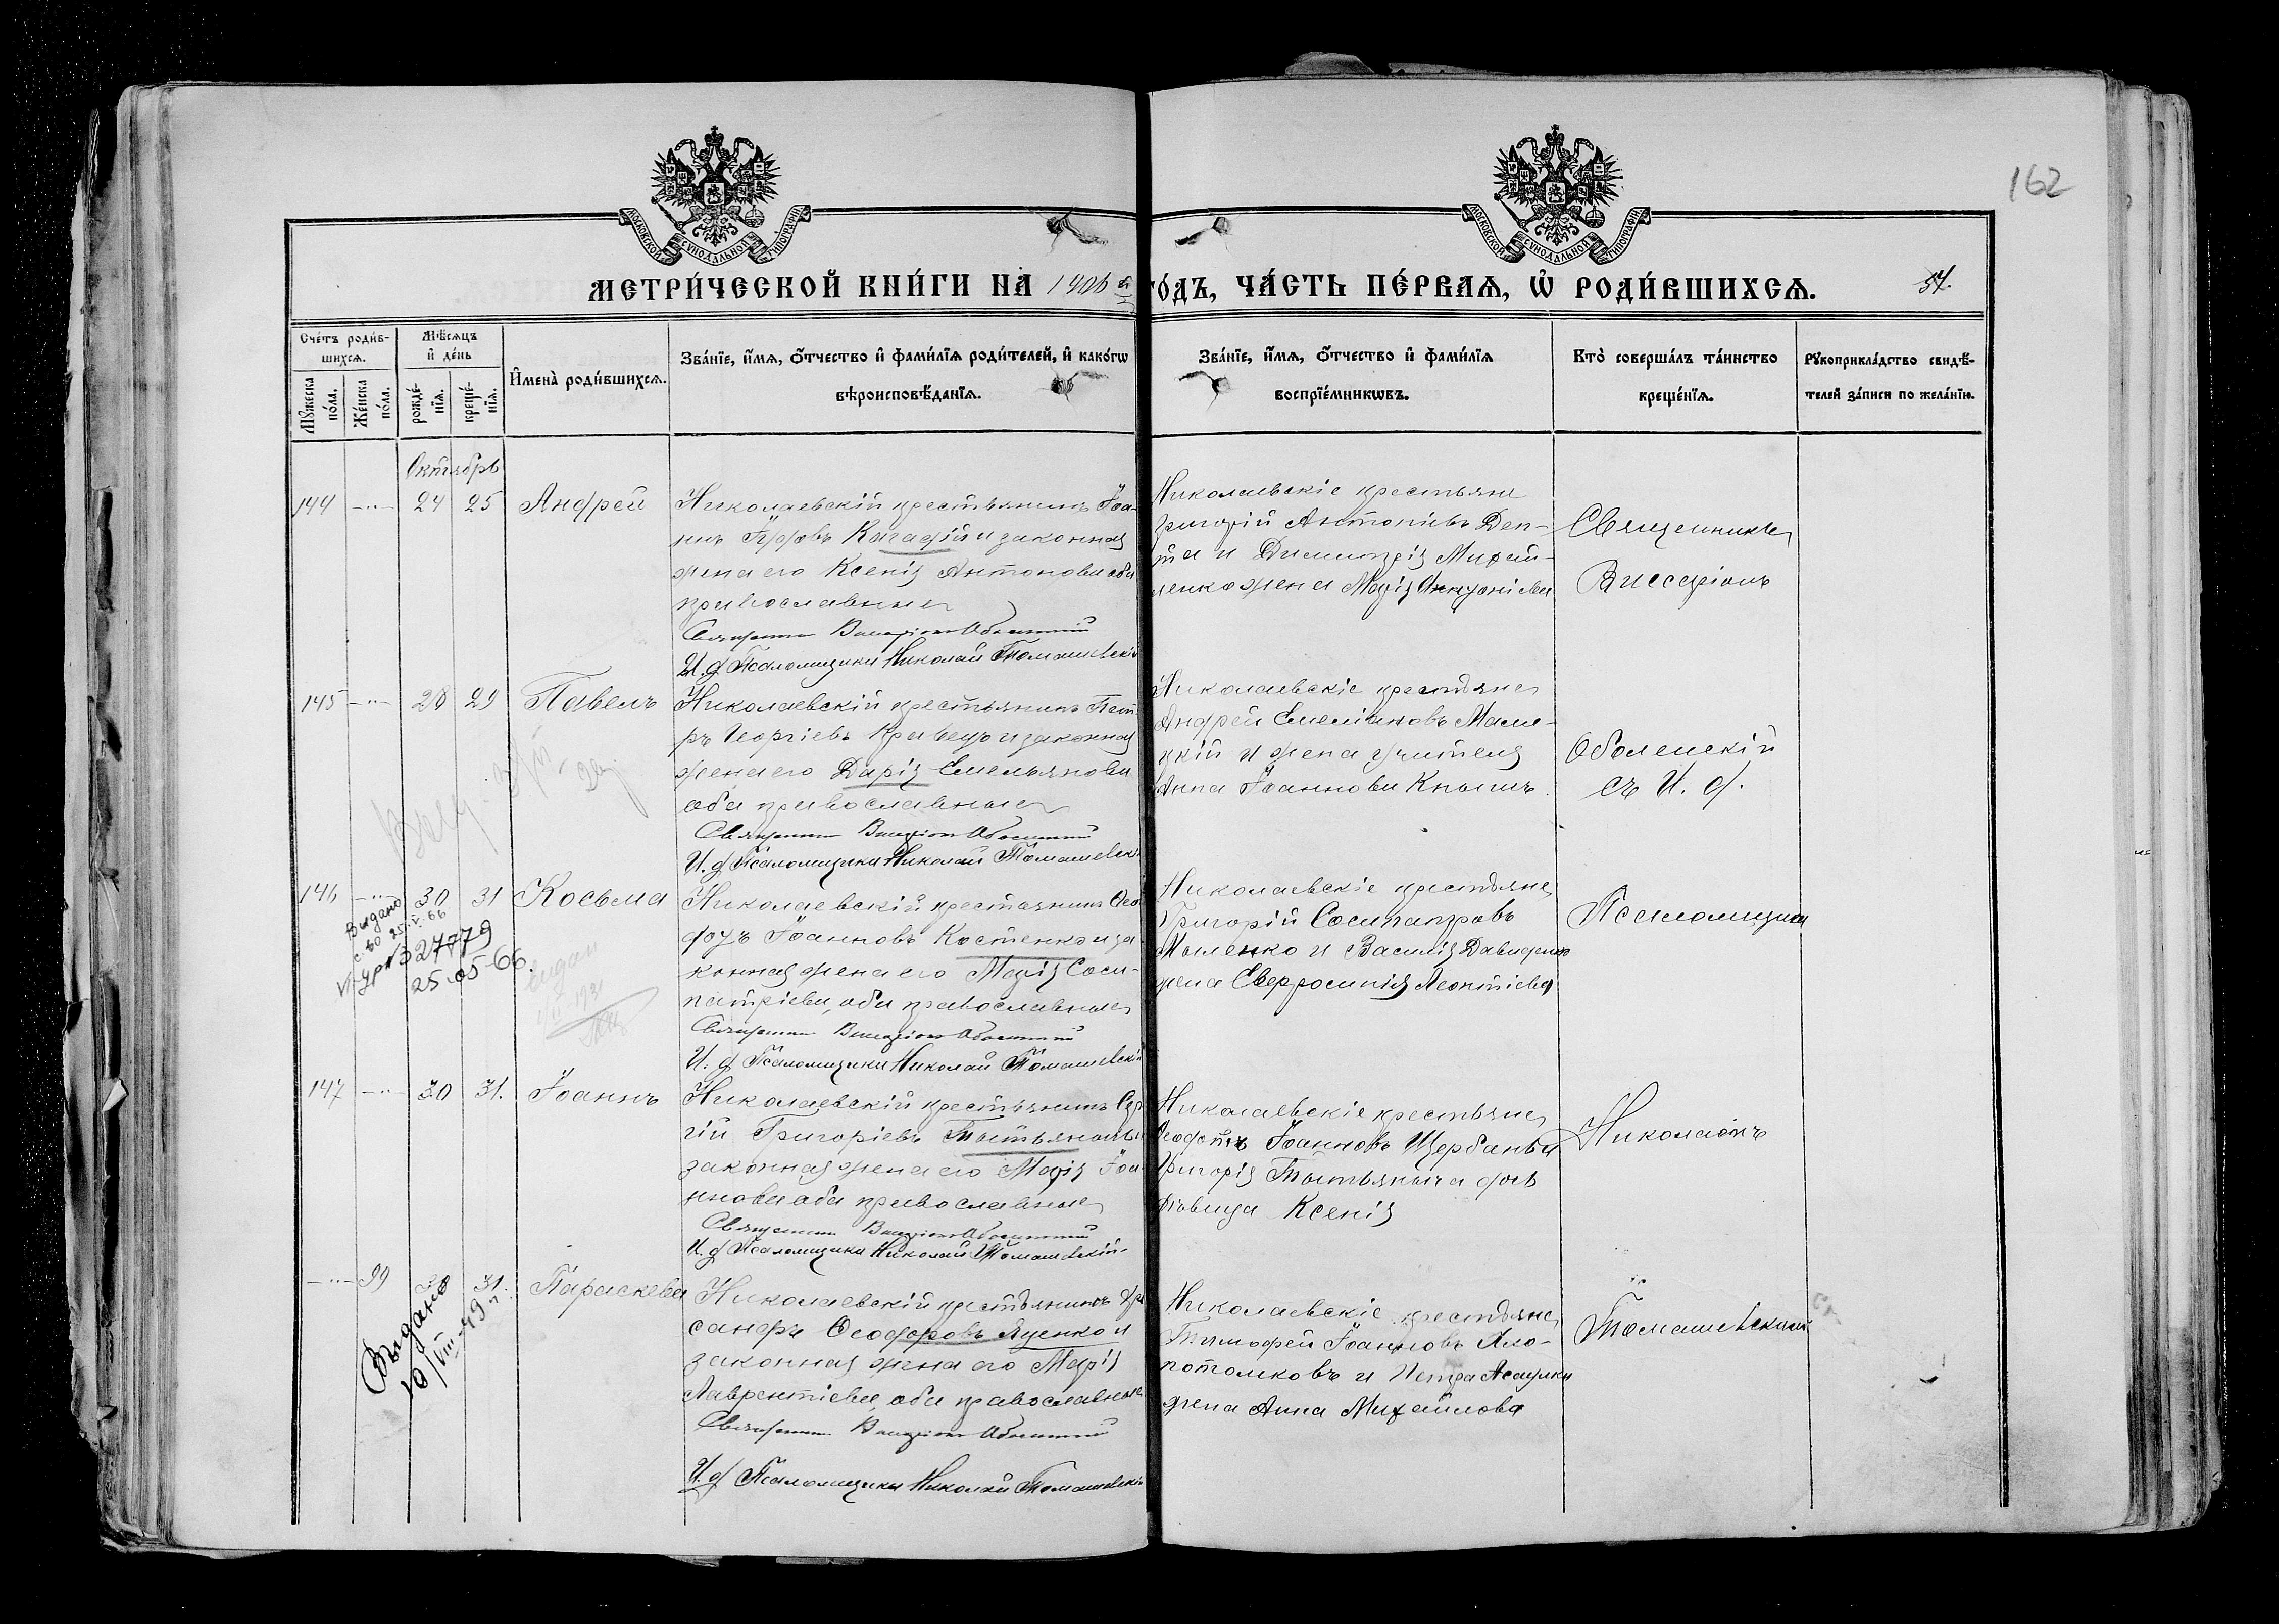 162
МОСКОВСКОЙ СѴНОДАЛЬНОЙ ТИПОГРАФІИ
МОСКОВСКОЙ СѴНОДАЛЬНОЙ ТИПОГРАФІИ
МЕТРИ́ЧЕСКОЙ КНИ́ГИ НА 1906
ГО́ДЪ, ЧА́СТЬ ПЕ́РВАѦ, Ѡ҆ РОДИ́ВШИХСѦ.
54.
Сче́тъ роди́в-
шихсѧ.
Мꙋжеска по́ла.
Же́нска по́ла.
Мѣ́сѧцъ
и҆ де́нь
рожде́-
нїѧ.
креще́-
нїѧ.
И҆мена̀ роди́вшихсѧ.
Зва́нїе, и҆́мѧ, ѻ҆́тчество и҆ фами́лїѧ роди́телей, и҆ како́гѡ
вѣроисповѣ́данїѧ.
Зва́нїе, и҆́мѧ, ѻ҆́тчество и҆ фами́лїѧ
воспрїе́мникѡвъ.
Кто̀ соверша́лъ та́инство
креще́нїѧ.
Рꙋкоприкла́дство свидѣ́-
телей за́писи по жела́нїю.
Октябрь
144 -"- 24 25 Андрей
Николаевскій крестьянинъ Іоа-
ннъ и законная
жена его Ксенія Антонова оба
православные
Священникъ Виссаріонъ Оболенскій
И. д. Псаломщика Николай Томашевскій
Николаевскіе крестьяне
Григорій Антоніевъ Деп-
та и Димитрія Михай-
ленко жена Марія
Священникъ
Виссаріонъ
145 -"- 28 29 Павелъ
Николаевскій крестьянинъ Пет-
ръ Георгіевъ Кравецъ и законная
жена его Дарія Емельянова
оба православные
Священникъ Виссаріонъ Оболенскій
И. д. Псаломщика Николай Томашевскій
Николаевскіе крестьяне
Андрей Емеліановъ Мали-
цкій и жена учителя
Анна Іоаннова Кнышъ.
Оболенскій
съ И. д.
146 -"- 30 31 Косьма
Выдано
с-во 25.V.66
VI-УР №327779
25-05-66.
Николаевскій крестьянинъ Ѳео-
доръ Іоанновъ Костенко и за-
конная жена его Марія Соси-
патріева, оба православные
Священникъ Виссаріонъ Оболенскій
И. д. Псаломщика Николай Томашевскій
Николаевскіе крестьяне
Григорій Сосипатровъ
и Василія Давиденко
жена Евфросинія Леонтіева
Псаломщика
147 -"- 30 31. Іоаннъ
Николаевскій крестьянинъ Сер-
гій Григоріевъ и
законная жена его Марія Іоа-
ннова оба православные
Священникъ Виссаріонъ Оболенскій
И. д. Псаломщика Николай Томашевскій
Николаевскіе крестьяне
Ѳеодотъ Іоанновъ Щербань и
Григорія дочь
дѣвица Ксенія
Николаемъ
-"- 99 30 31. Параскева
Выдано
10/VIII-49
Николаевскій крестьянинъ
Ѳеодоровъ Яценко и
законная жена его Марія
Лаврентіева, оба православные
Священникъ Виссаріонъ Оболенскій
И. д. Псаломщика Николай Томашевскій
Николаевскіе крестьяне
Тимофей Іоанновъ
и Петра
жена Анна Михайлова
Томашевскимъ